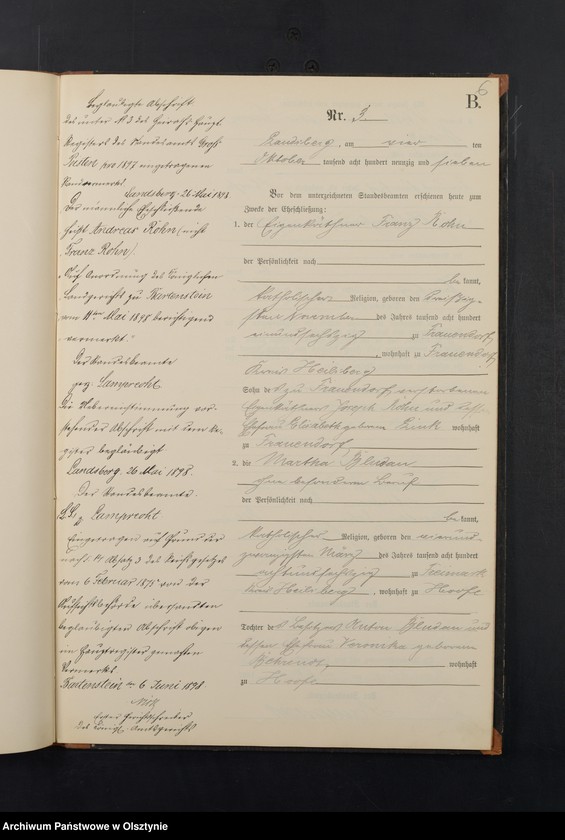 Beglaubigte Abschrift
des unter N 3 des Heirats-Haupt-
Registers des Standesamts Groß
Peisten pro 1897 eingetragenen
Randvermerks.
Landsberg, 26 Mai 1898.
Der männliche Eheschließende
heißt Andreas Rohn (nicht
Franz Rohn).
Auf Anordnung des Königlichen
Landgerichts zu Bartenstein
vom 11ten Mai 1898 berichtigend
vermerkt.
Der Standesbeamte
gez. Lamprecht
Die Uebereinstimmung vor-
stehender Abschrift mit dem Re-
gister beglaubigt
Landsberg, 26 Mai 1898.
Der Standesbeamte.
L.S. Lamprecht
Eingetragen auf Grund der
nach § 14 Absatz 2 des Reichsgesetzes
vom 6 Februar 1875 von der
Aufsichtsbehörde übersandten
beglaubigten Abschrift obigen
im Hauptregister gemachten
Vermerks
Bartenstein den 6 Juni 1898
Erster Gerichtsschreiber
des Königl. Amtsgerichts
6
B.
Nr. 3.
Landsberg, am vier ten
Oktober tausend acht hundert neunzig und sieben
Vor dem unterzeichneten Standesbeamten erschienen heute zum
Zwecke der Eheschließung:
1. der Eigenkäthner Franz Rohn
der Persönlichkeit nach
be kannt,
katholischer Religion, geboren den dreißig-
sten November des Jahres tausend acht hundert
einundsechzig zu Frauendorf
, wohnhaft zu Frauendorf
Kreis Heilsberg
Sohn des zu Frauendorf verstorbenen
Eigenkäthners Joseph Rohn und dessen
Ehefrau Elisabeth geboren Fink wohnhaft
zu Frauendorf
2. die Martha Bludau
ohne besonderen Beruf
der Persönlichkeit nach
be kannt,
katholischer Religion, geboren den vierund-
zwanzigsten März des Jahres tausend acht hundert
achtundsechzig zu Freimark
Kreis Heilsberg, wohnhaft zu Hoofe
Tochter des Losmanns Anton Bludau und
dessen Ehefrau Veronika geboren
Behrendt wohnhaft
zu Hoofe
Archiwum Państwowe w Olsztynie